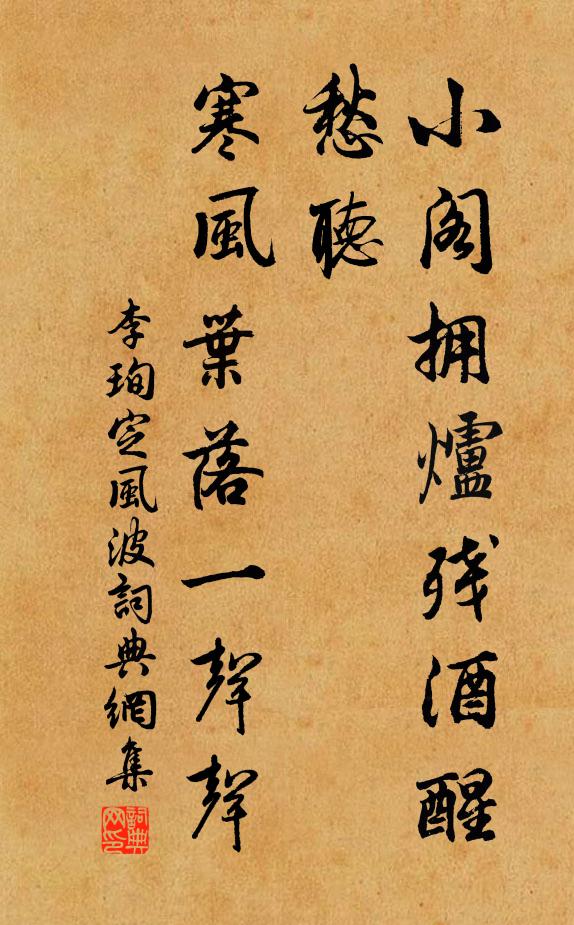 小阁拥爐残酒醒
愁聽
寒風葉落一聲聲
李珣定風波詞典網集
詞典网印